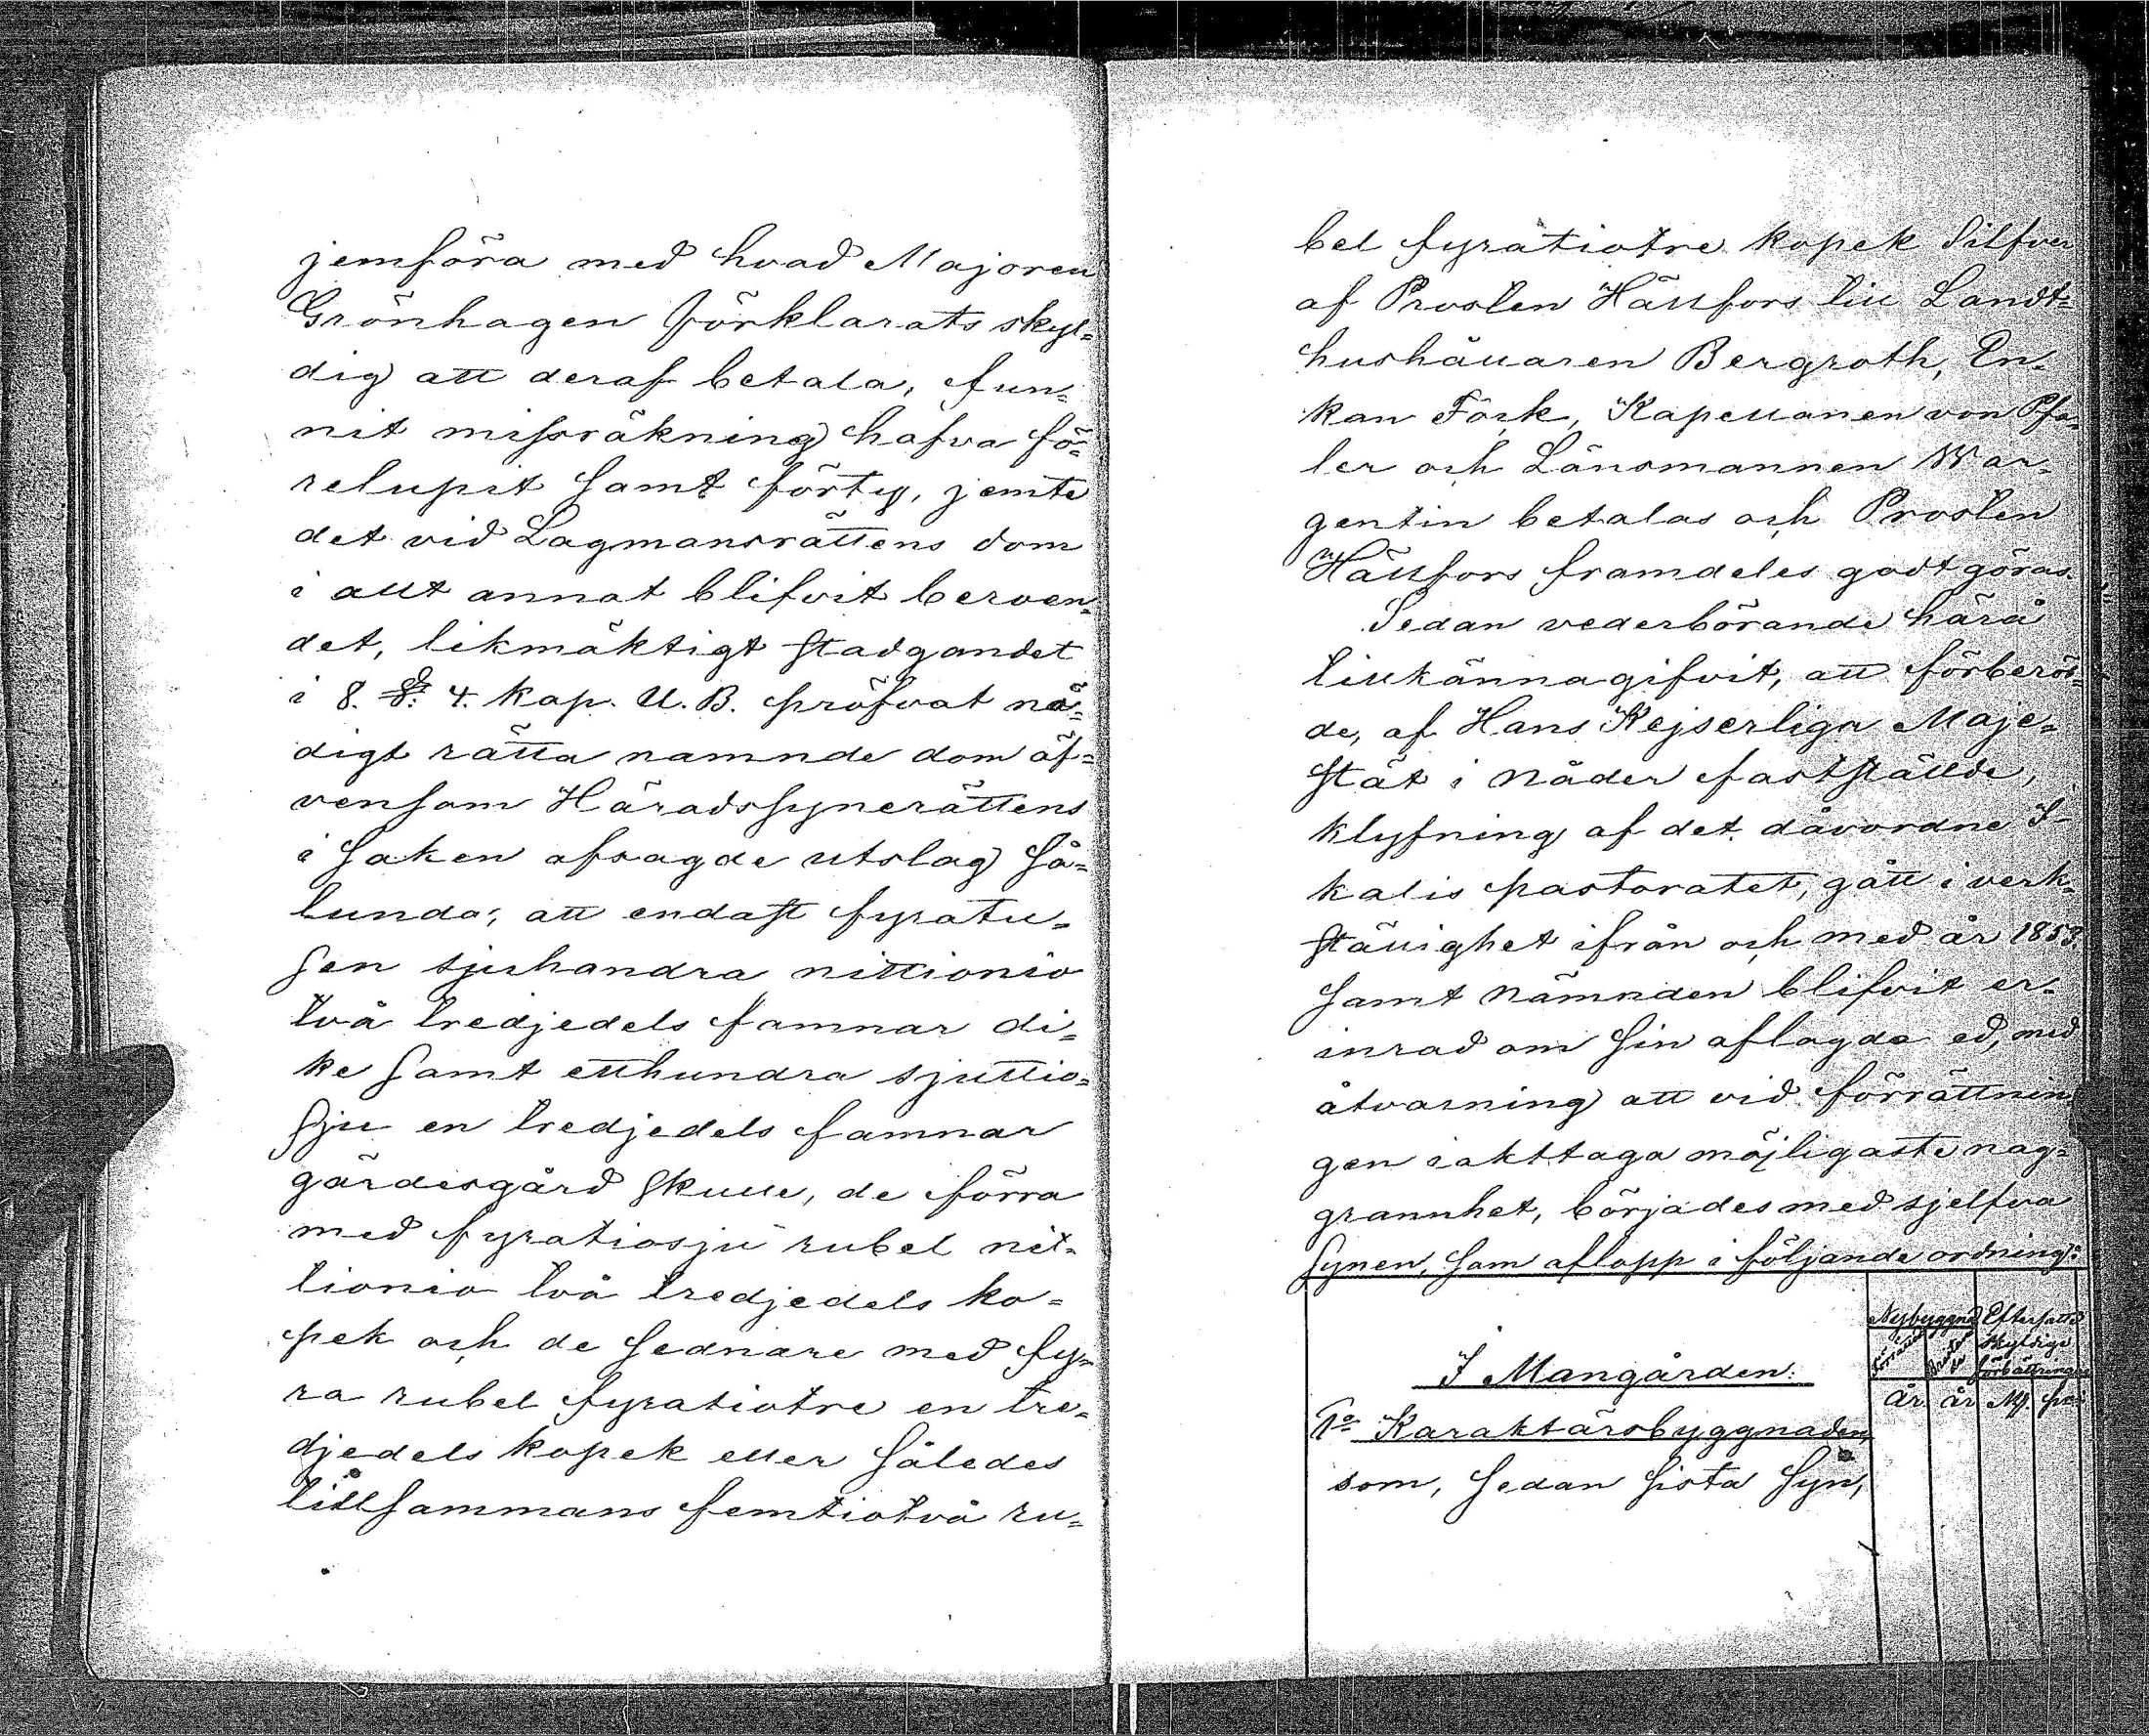 jemföra med hvad Majoren
Grönhagen förklarats skyl=
dig att deraf betala, fun=
nit missräkning hafva fö=
relupit samt förty, jemte
det vid Lagmansrättens dom
i allt annat blifvit beroen=
det, likmäktigt stadgandet
i 8. §. 4. kap. U. B. pröfvat nå=
digt rätta nämnde dom äf=
vensom Häradssynerättens
i saken afsagde utslag så=
lunda, att endast fyratu=
sen sjuhundra nittionio
två tredjedels famnar di=
ke samt etthundra sjuttio=
sju en tredjedels famnar
gärdesgård skulle, de förra
med fyratiosju rubel nit=
tionio två tredjedels ko=
pek och de sednare med fy=
ra rubel fyratiotre en tre=
djedels kopek eller således
tillsammans femtiotvå ru=
bel fyratiotre kopek Silfver
af Prosten Hällfors till Landt=
hushållaren Bergroth, En=
kan Törk, Kapellanen von Pfa=
ler och Länsmannen War=
gentin betalas och Prosten
Hällfors framdeles godtgöras.
Sedan vederbörande härå
tillkännagifvit, att förberör=
de, af Hans Kejserliga Maje=
stät i nåder fastställde,
klyfning af det dåvordne I=
kalis pastoratet, gått i verk=
ställighet ifrån och med år 1853.
samt nämnden blifvit er=
inrad om sin aflagda ed, med
åtvarning att vid förrättnin
gen iakttaga möjligaste nog=
grannhet, börjades med sjelfva
synen, som aflopp i följande ordning:
Nybyggnad Eftersatte
skyldige
förbättringar
år år
I Mangården:
1o Karaktärsbyggnaden,
som, sedan sista syn,